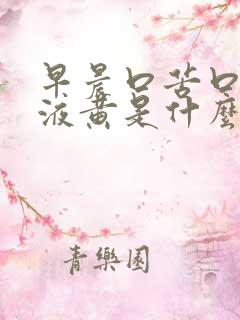 早晨口苦口
液黄是什麼
青樂園